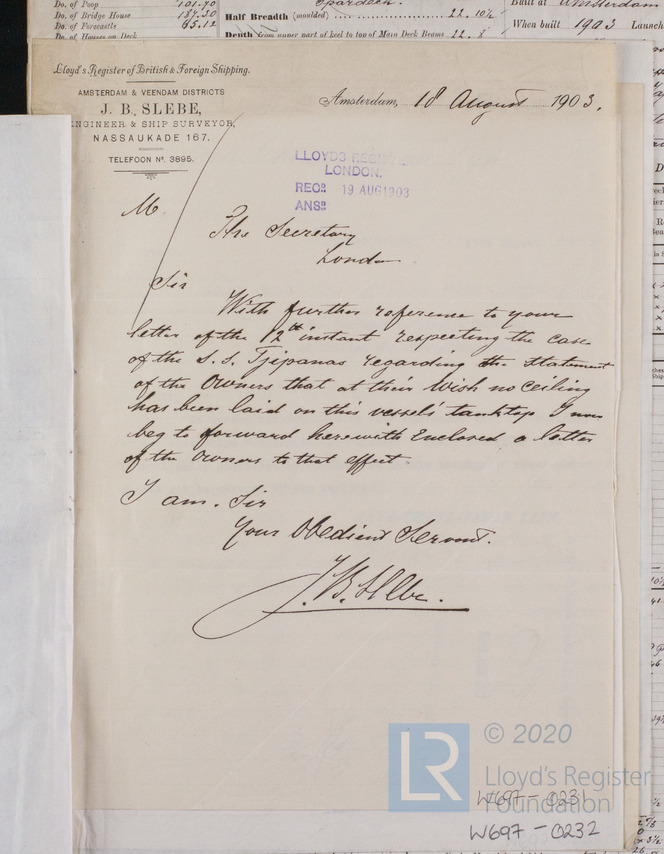 Do. of Poop 101.70
Do. of Bridge House 187.30
Do. of Forecastle 65.12
Do. of Houses on Deck
Spardeck.
Half Breadth (moulded) 22. 10½
Depth from upper part of keel to top of Main Deck Beams 22. 8
Built at Amsterdam
When built 1903 Launch
Lloyd's Register of British & Foreign Shipping.
AMSTERDAM & VEENDAM DISTRICTS
J. B. SLEBE,
ENGINEER & SHIP SURVEYOR,
NASSAUKADE 167.
TELEFOON No. 3895.
Amsterdam, 18 August 1903.
LLOYDS REGISTER
LONDON.
RECD. 19 AUG 1903
ANSD.
M
The Secretary
London
Sir
With further reference to your
letter of the 12th instant respecting the case
of the S.S. Tjipanas regarding the statement
of the Owners that at their wish no ceiling
has been laid on this vessel's tanktop I now
beg to forward herewith Enclosed a letter
of the Owners to that effect.
I am. Sir
Your Obedient Servant.
J. B. Slebe.
LR
© 2020
Lloyd's Register
Foundation
W697-0231
W697-0232